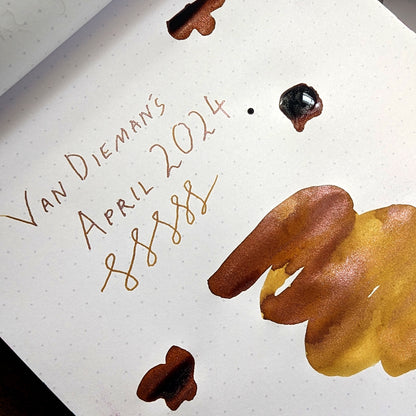 VAN DIEMAN'S
APRIL 2024